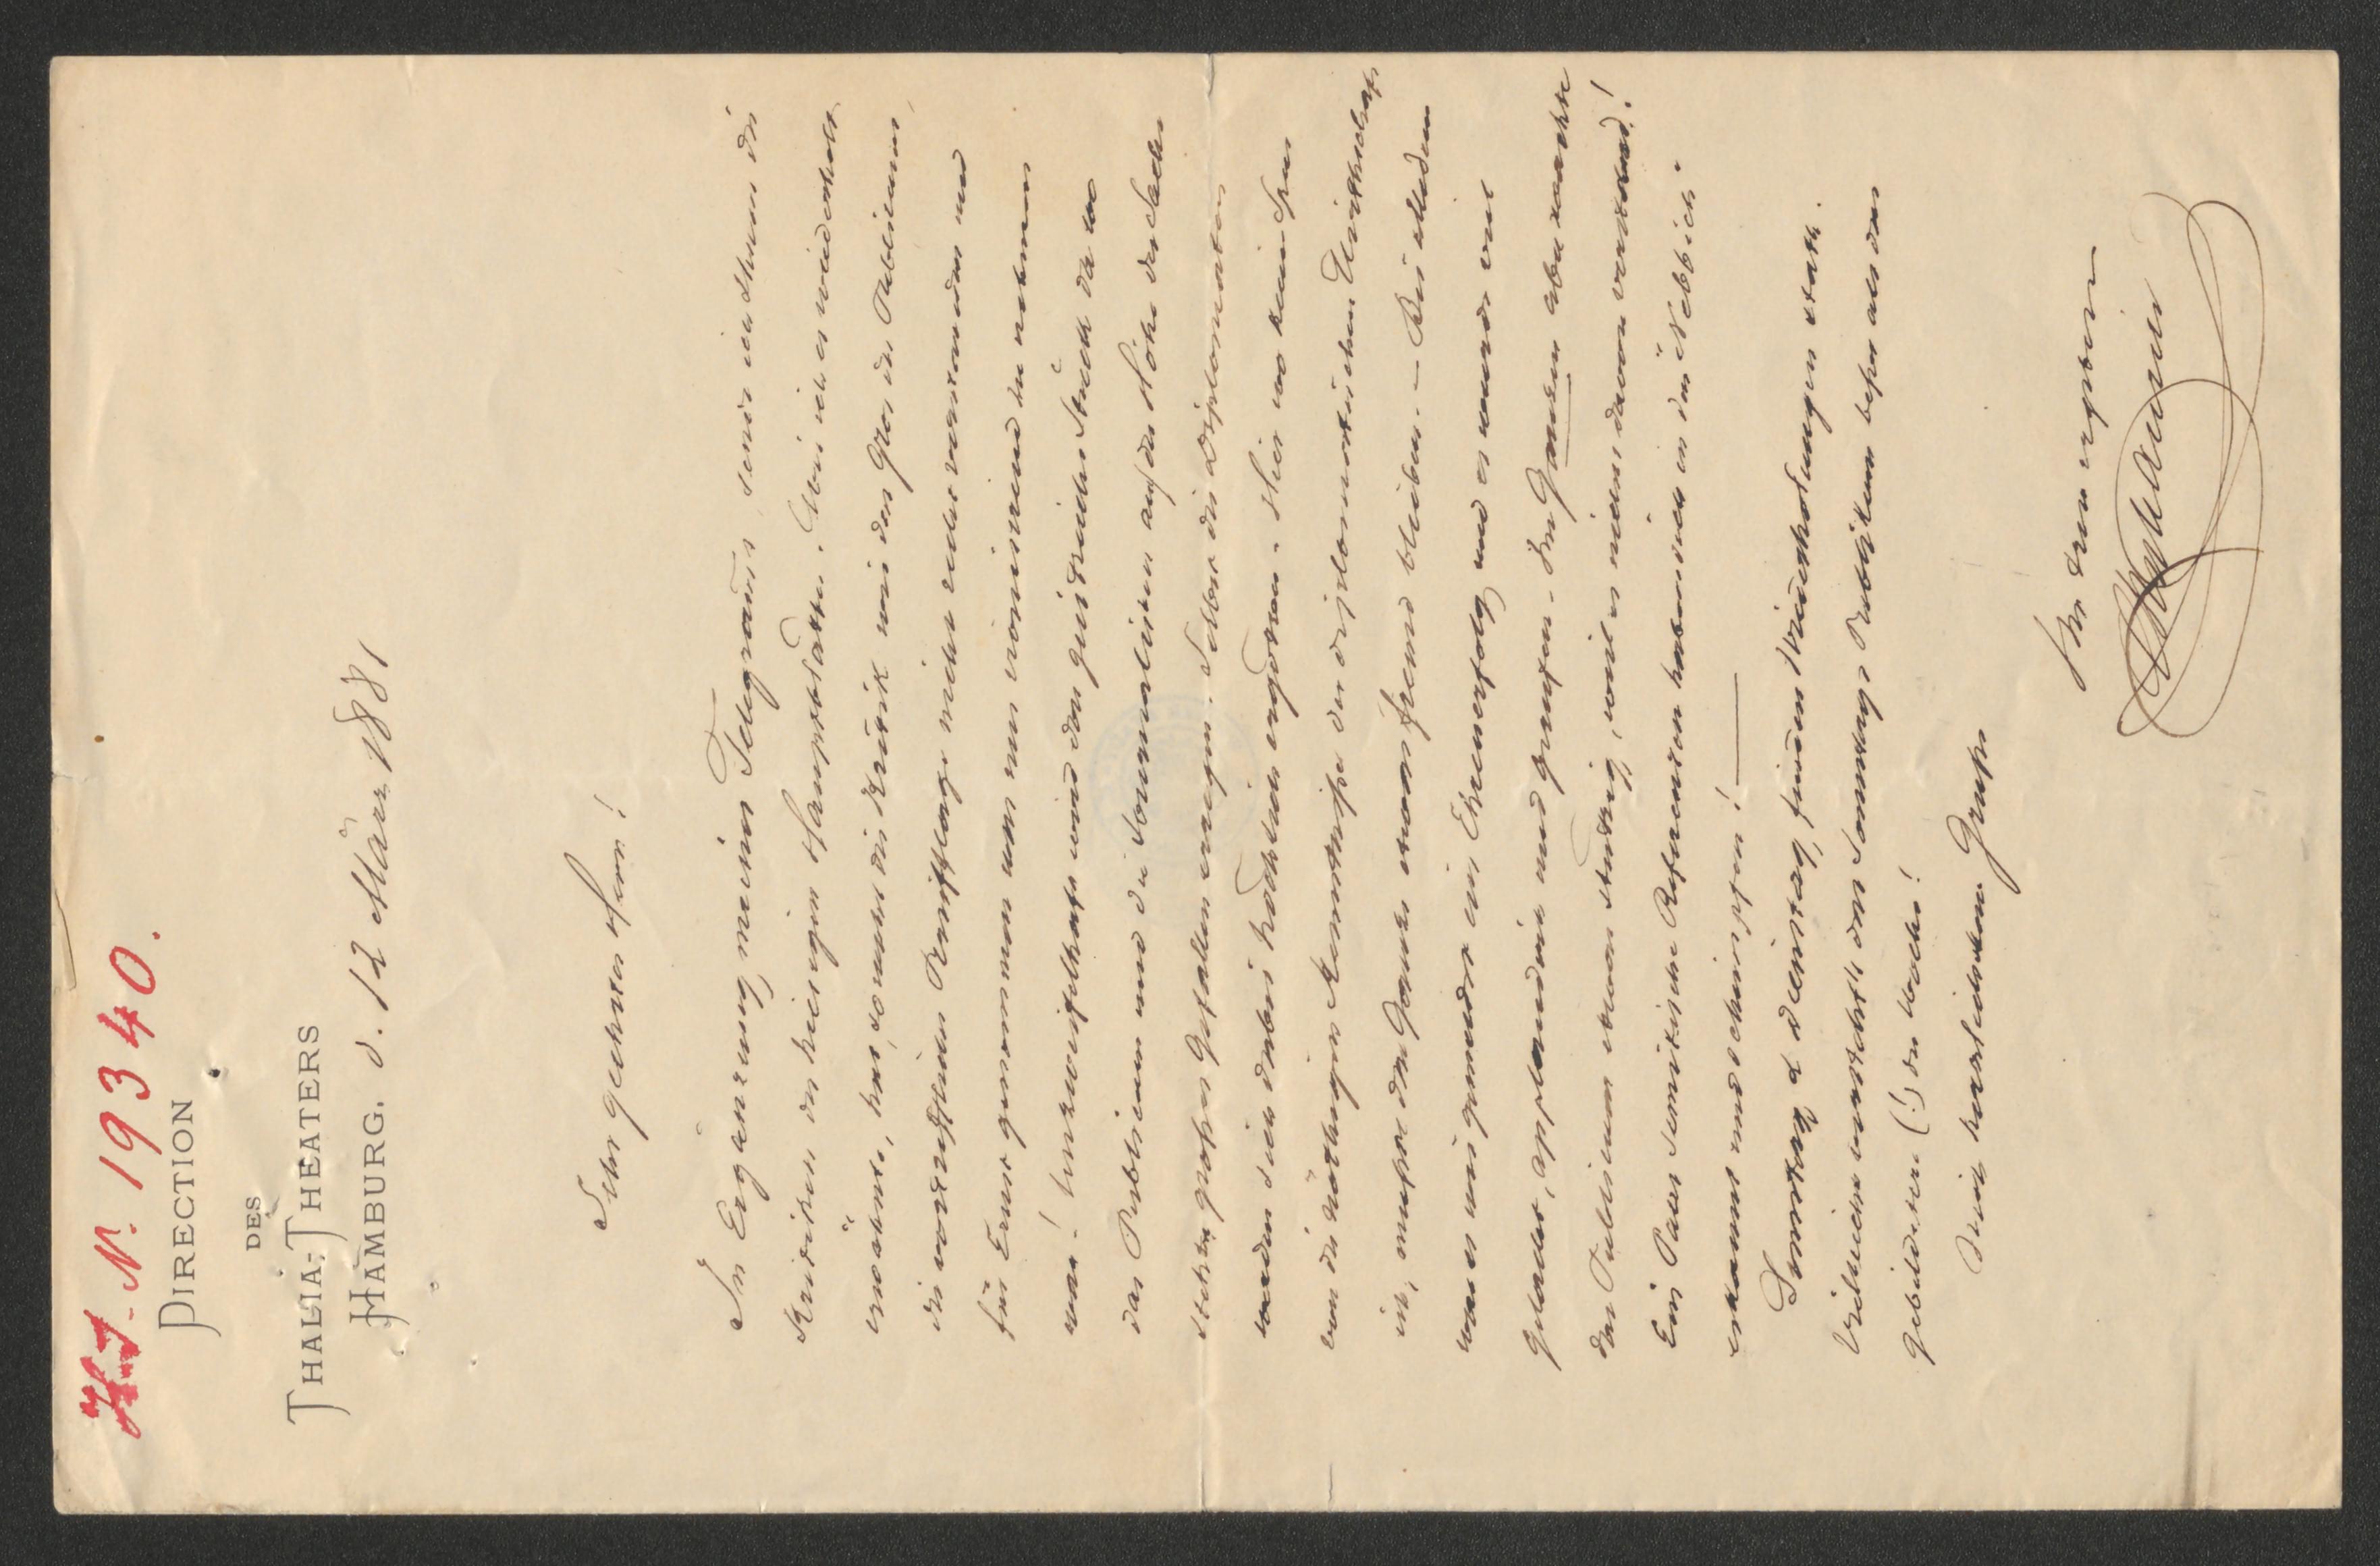 H.I.N. 19340.
DIRECTION
DES
THALIA-THEATERS
HAMBURG. d. 12 März 1881
Sehr geehrter Herr!
In Ergänzung meines Telegramms, sende ich Ihnen die
Kritiken der hiesigen Hauptblätter. Was ich es wiederholt
erwähnte, hat, sowohl die Kritik wie das Gros des Publicums,
die vortreffliche Persifflage nicht recht verstanden und
für Ernst genommen was nur ironisirend zu nehmen
war! Unzweifelhaft wird das geistreiche Stück da wo
das Publicum und die Journalisten auf der Höhe der Sache
stehen großes Gefallen erregen. Selbst die Diplomaten
werden sich dabei höchlich ergötzen. Hier wo keine Spur
von der nöthigen Kenntniße der diplomatischen Wirthschaft
ist, mußte das Ganze etwas fremd bleiben. – Bei alledem
war es wie gemeldet ein Ehrenerfolg und es wurde viel
gelacht, applaudirt und gerufen. Im Ganzen aber machte
das Publicum etwas stutzig, weil es nichts davon verstand!
Ein Paar semitische Referenten haben sich in den "Nebbich"
erkannt und schimpfen! —
Sonntag & Dienstag finden Wiederholungen statt.
Vielleicht versteht's das Sonntags Publikum besser als das
gebildetere (!) der Woche!
Mit herzlichem Gruße
Ihr treu ergebener